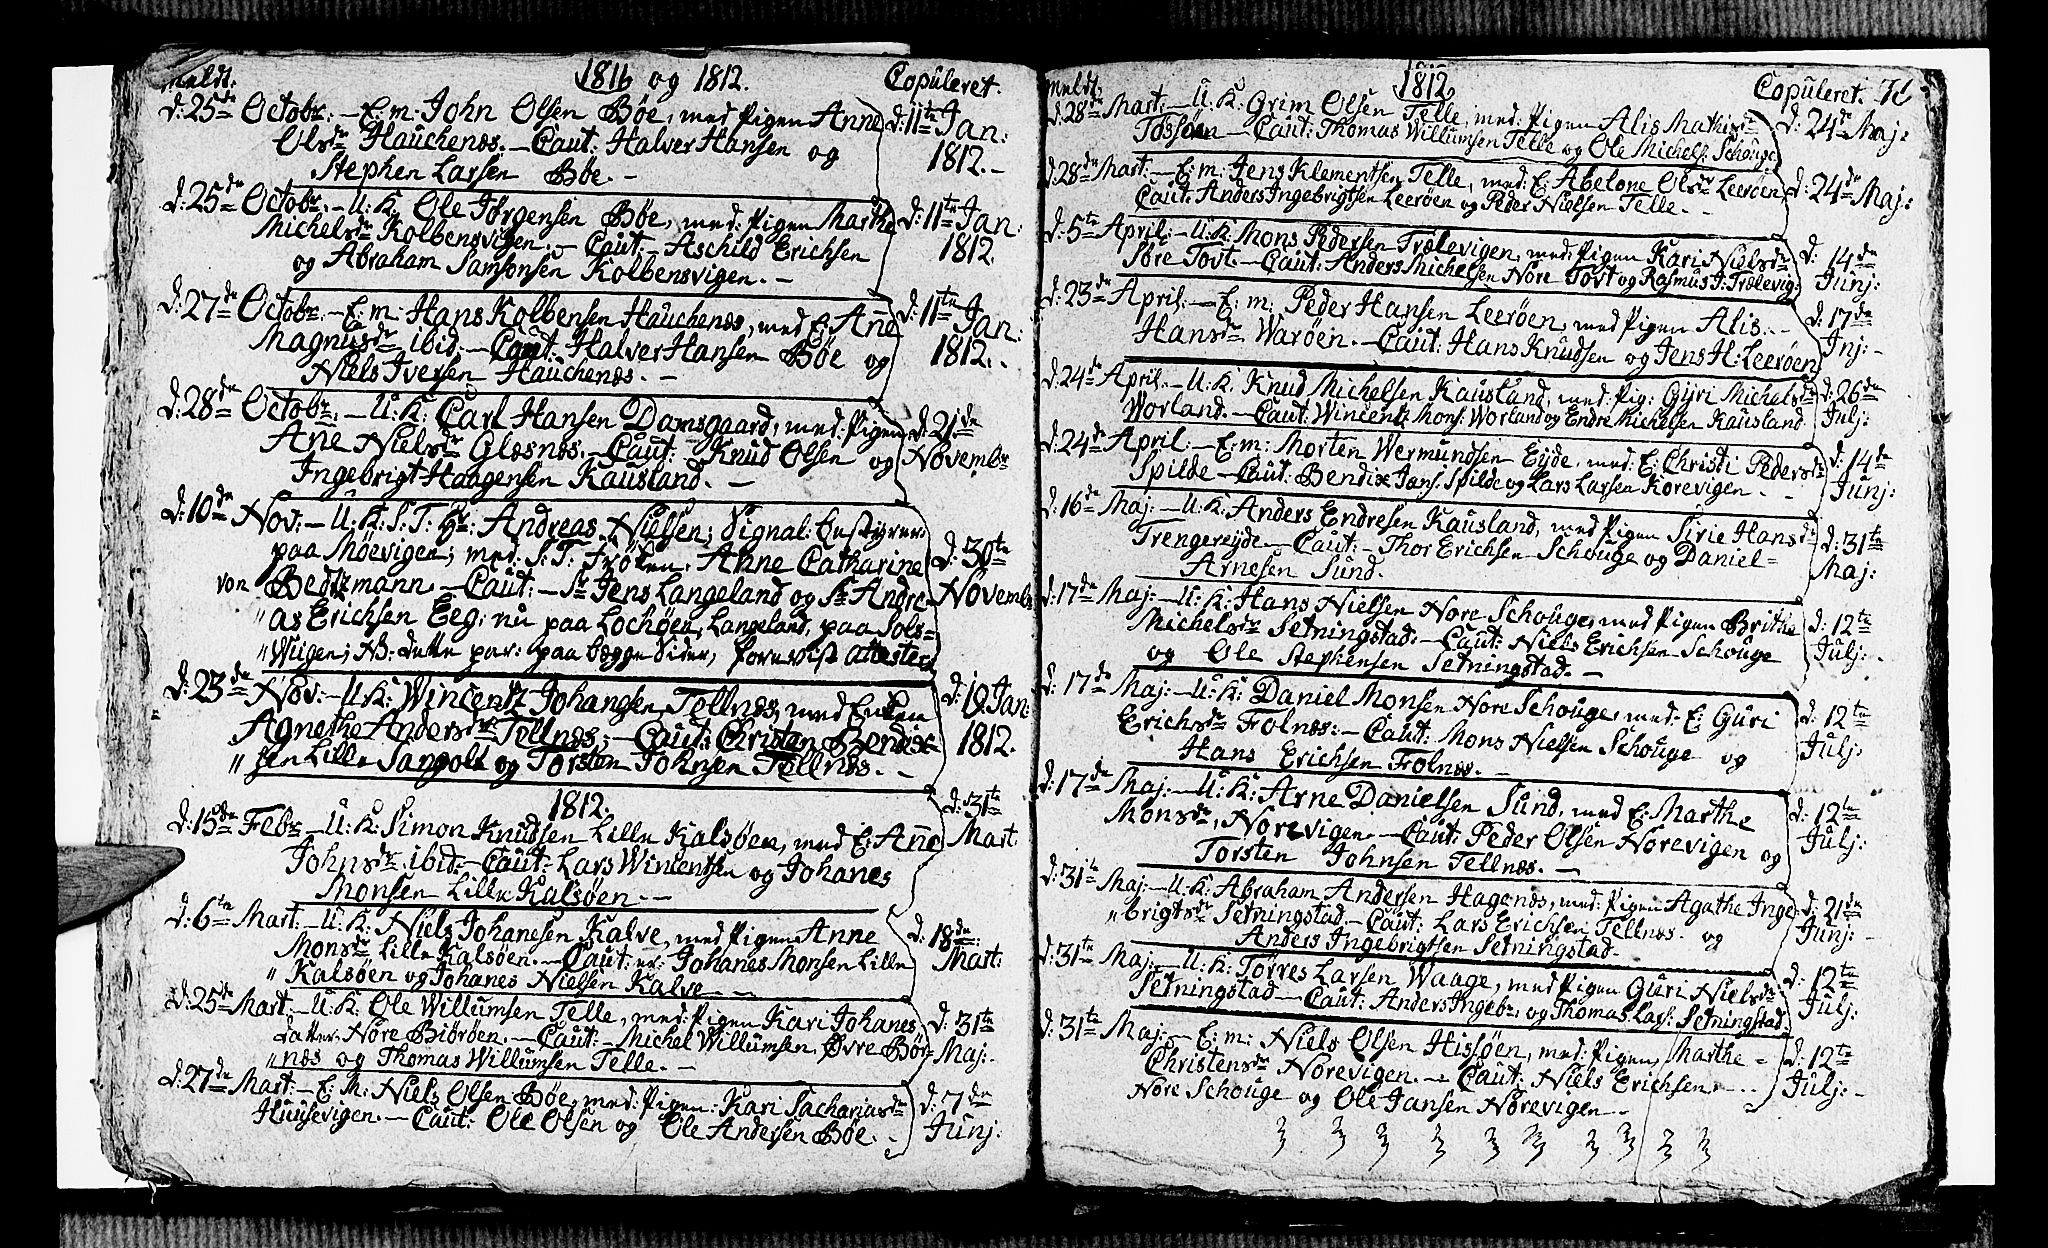 meldt. 1811 og 1812. Copuleret.
d: 25de Octobr: – E: m: John Olsen Bøe, med Pigen Anne d: 11te Jan:
Olsdr Hauchenæs. – Caut: Halver Hansen og 1812. –
Stephen Larsen Bøe. –
d: 25de Octobr. – U: K: Ole Jørgensen Bøe, med: Pigen Marthe d: 11te Jan:
Michelsdr Kolbensvigen. – Caut: Aschild Erichsen 1812.
og Abraham Samsonsen Kolbensvigen. –
d: 27de Octobr. – E: m: Hans Kolbensen Hauchenæs, med E: Ane d: 11te Jan:
Magnusdr ibid: – Caut: Halver Hansen Bøe og 1812. .
Niels Iversen Hauchenæs. –
d: 28de Octobr. – U: K: Carl Hansen Damsgaard, med: Pigen d: 21de
Ane Nielsdr Glæsnæs. – Caut: Knud Olsen og Novembr
Ingebrigt Haagensen Kausland. –
d: 10de Nov: – U: K: S: T: Hr: Andreas Nielsen; Signal: bestyrer
paa Møevigen; med: S: T: Frøken, Anne Catharine d: 30te
von Bedtzmann. – Caut: – Sr Jens Langeland og Sr Andre- Novembr
" as Erichsen Eeg; nu paa Lochøen; Langeland, paa Sols-
" Wiigen; NB: dette par: paa begge Sider, forevist attester
d: 23de Nov: – U: K: Wincentz Johansen Tellnæs, med Enken d: 19 Jan:
Agnethe Andersdr Tellnæs; – Caut: Christen Bendix 1812.
" sen Lille Sangolt og Torsten Johnsen Tellnæs. –
1812.
d: 15de Febr – U: K: Simon Knudsen Lille Kalsøen, med E: Ane d: 31te
Johnsdr ibid: – Caut: Lars Wincentsen og Johanes Mart:
Monsen Lille Kalsøen. –
d: 6te Mart: – U: K: Niels Johanesen Kalve, med Pigen Anne d: 18de
Monsdr Lille Kalsøen. – Caut: er: Johanes Monsen Lille Mart:
" Kalsøen og Johanes Nielsen Kalve – –
d: 25de Mart. U: K: Ole Willumsen Telle, med: Pigen Kari Johanes d: 31te
datter Nore Biørøen. – Caut: – Michel Willumsen, Øvre Bør- Maj: –
" næs og Thomas Willumsen Telle. –
d: 27de Mart: – E: M: Niels Olsen Bøe, med: Pigen: Kari Sachariasdr d: 7de
Huusevigen. – Caut: Ole Olsen og Ole Andersen Bøe. . Junj:
meldt: 1812 Copuleret. 76
d: 28de Mart: – U: K: Grim Olsen Telle, med: Pigen Alis Mathisdr d: 24de Maj:
Tøssøen – Caut: Thomas Willumsen Telle og Ole Michels: Schouge
d: 28de Mart: – E: m: Jens Klementsen Telle, med: E: Abelone Olsdr Leerøen d: 24de Maj:
Caut: Anders Ingebrigtsen Leerøen og Peder Nielsen Telle. –
d: 5te April: – U: K: Mons Pedersen Trælevigen, med: Pigen Kari Nielsdr d: 14de
Søre Tovt. – Caut: Anders Michelsen Nore Tovt og Rasmus J: Trælevig: Junj:
d: 23de April: – E: m: Peder Hansen Leerøen, med Pigen Alis – d: 17de
Hansdr Warøen. – Caut: Hans Knudsen og Jens H: Leerøen Jnj: –
d: 24de April. – U: K: Knud Michelsen Kausland, med: Pig: Gyri Michelsdr d: 26de
Worland. – Caut: Wincentz Mons: Worland og Endre Michelsen Kausland Julj:
d: 24de April: – E: m: Morten Wermundsen Eyde, med: E: Christi Pedersdr d: 14de
Spilde – Caut: Bendix Jans: Spilde og Lars Larsen Korevigen – – Junj:
d: 16de Maj: – U: K: Anders Endresen Kausland, med Pigen Sirie Hansdr d: 31te
Trengereyde – Caut: – Thor Erichsen Schouge og Daniel- Maj:
Arnesen Sund.
d: 17de Maj: – U: K: Hans Nielsen Nore Schouge, med Pigen Brithe d: 12te
Michelsdr Setningstad: – Caut: Niels Erichsen Schouge Julj: –
og Ole Stephensen Setningstad. –
d: 17de Maj: – U: K: Daniel Monsen Nore Schouge, med: E: Guri d: 12te
Erichsdr Folnæs: – Caut: Mons Nielsen Schouge og Julj:
Hans Erichsen Folnæs. –
d: 17de Maj: – U: K: Arne Danielsen Sund, med E: Marthe d: 12te
Monsdr, Norevigen – Caut: Peder Olsen Norevigen og Julj:
Torsten Johnsen Tellnæs. –
d: 31te Maj: – U: K: Abraham Andersen Hagenæs, med: Pigen Agathe Inge d: 21de
" brigtsdr Setningstad – Caut: Lars Erichsen Tellnæs. og Junj: –
Anders Ingebrigtsen Setningstad. –
d: 31te Maj. – U: K: Tørres Larsen Waage, med Pigen Guri Nielsdr d: 12te
Setningstad – Caut: Anders Ingebr, og Thomas Lars: Setningstad Julj:
d: 31te Maj: – E: m: Niels Olsen Hissøen, med: Pigen, Marthe – d: 12te
Christensdr Norevigen. – Caut: Niels Erichsen – – Julj: –
Nore Schouge og Ole Jansen Norevigen –